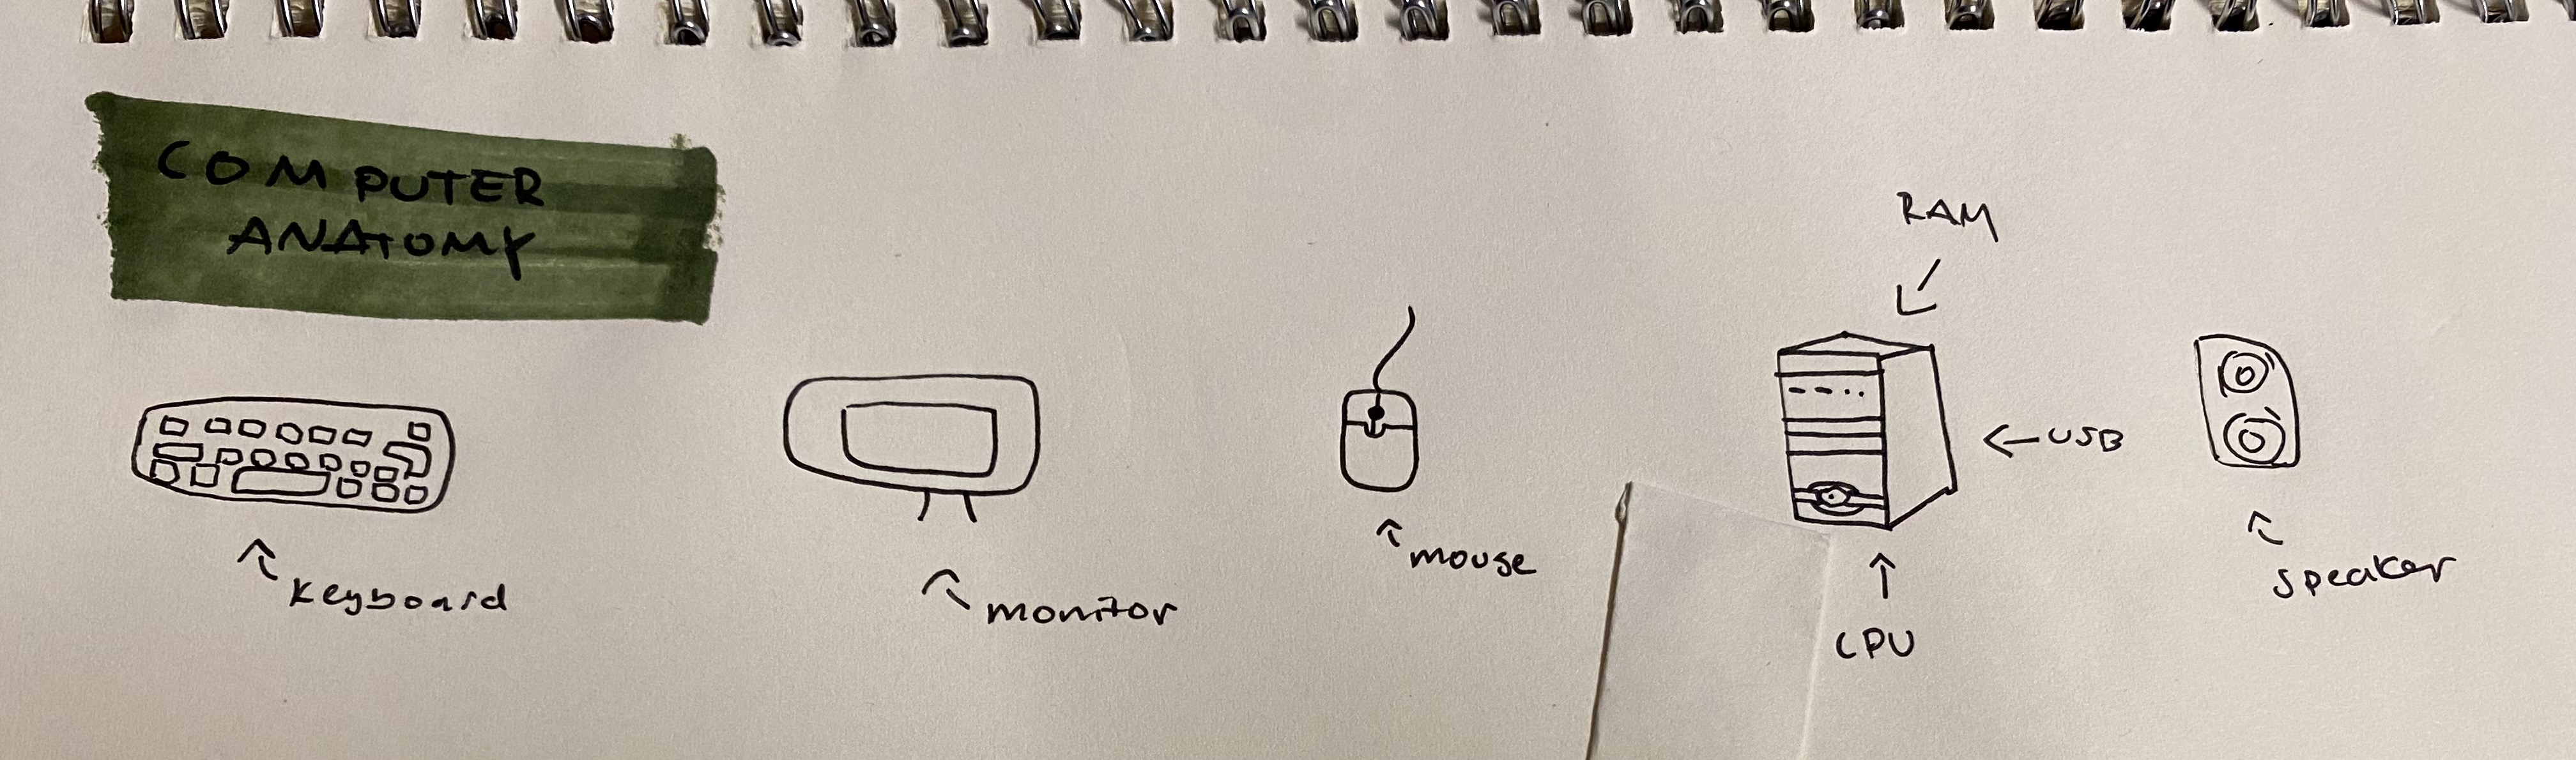 COMPUTER
ANATOMY
RAM
USB
keyboard
monitor
mouse
CPU
speaker